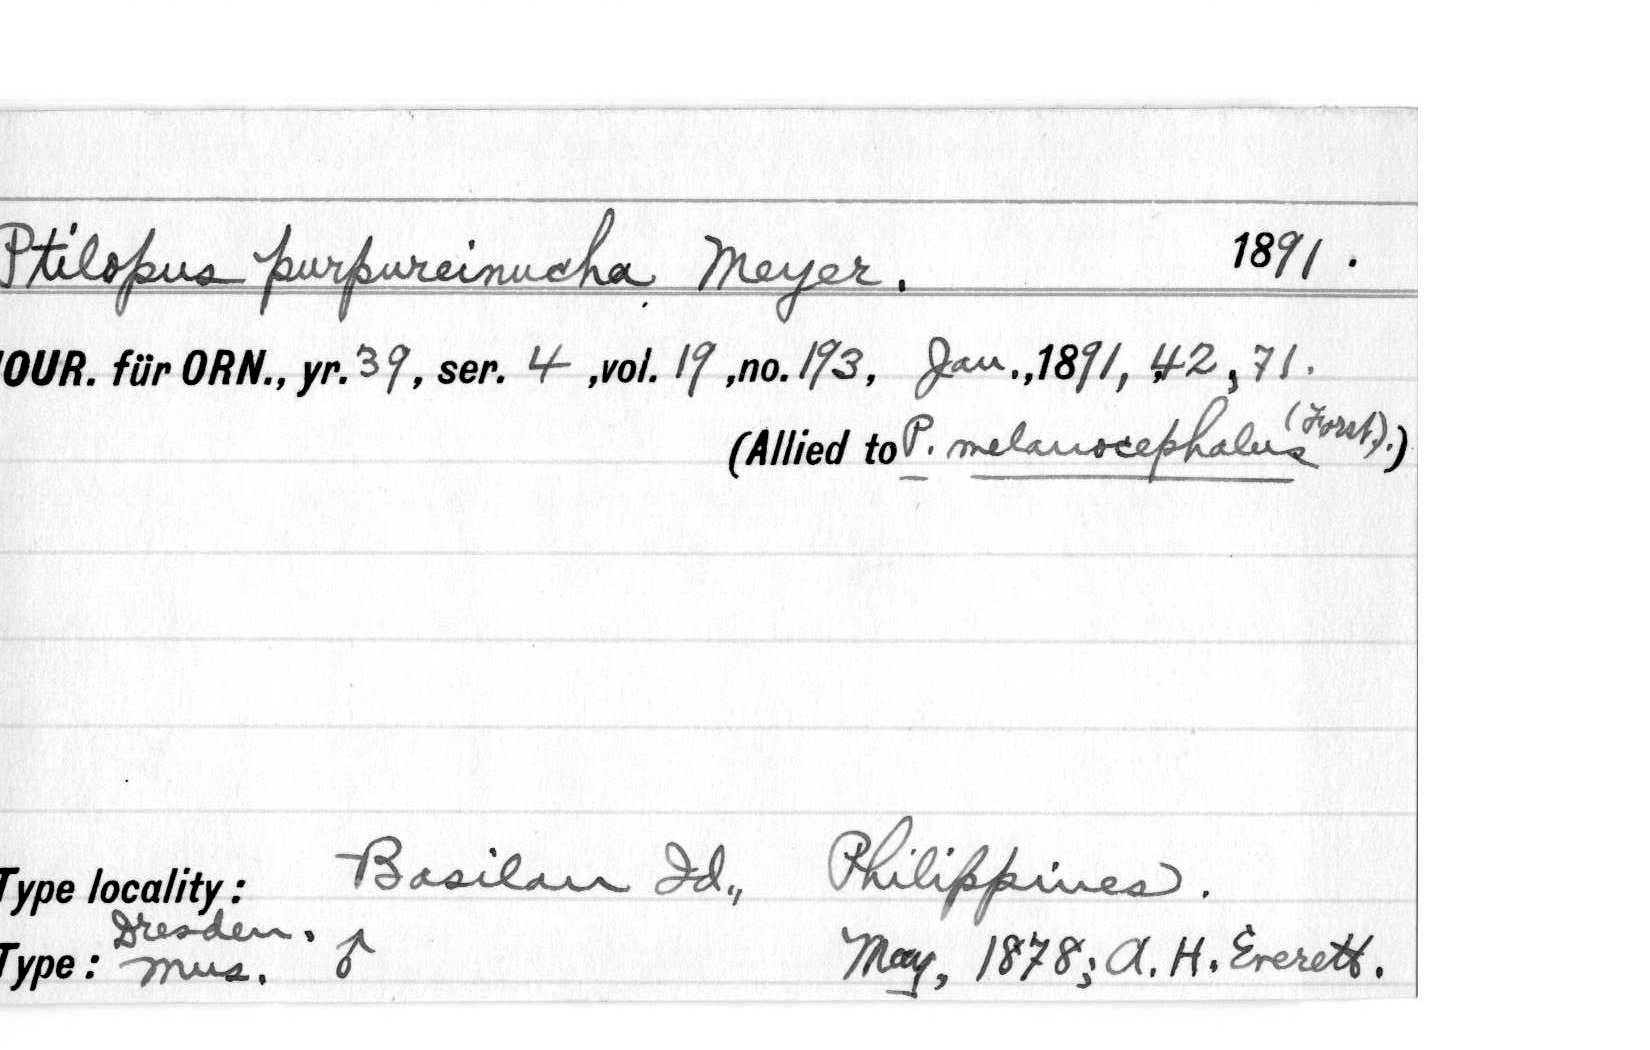 Ptilopus purpureinucha Meyer. 1891.
OUR. für ORN., yr. 39, ser. 4, vol. 19, no. 193, Jan., 1891, 42, 71.
(Allied to P. melanocephalus (Forst.).)
Type locality: Basilan Id., Philippines.
Type: Dresden. Mus. ♂ May, 1878; A. H. Everett.